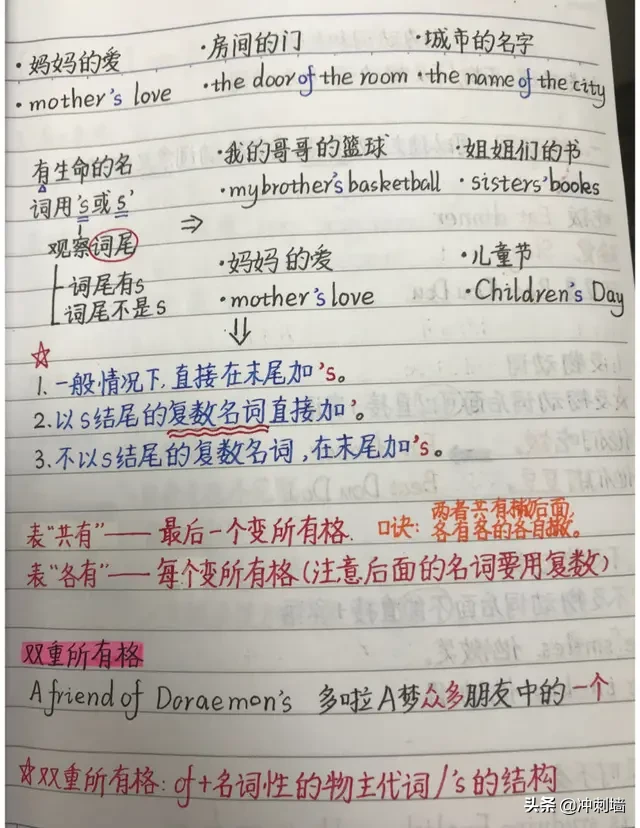 ·妈妈的爱 ·房间的门 ·城市的名字
·mother's love ·the door of the room ·the name of the city
有生命的名
词用's或s'
观察词尾
词尾有s
词尾不是s
⇒
·我的哥哥的篮球 ·姐姐们的书
·my brother's basketball ·sisters' books
·妈妈的爱 ·儿童节
·mother's love ·Children's Day
⇓
☆
1.一般情况下,直接在末尾加's。
2.以s结尾的复数名词直接加'。
3.不以s结尾的复数名词,在末尾加's。
表“共有”——最后一个变所有格. 口诀:两者共有撇后面,
各有各的各自撇。
表“各有”——每个变所有格(注意后面的名词要用复数)
双重所有格
A friend of Doraemon's 多啦A梦众多朋友中的一个
☆双重所有格:of+名词性的物主代词/'s的结构
头条 @冲刺墙